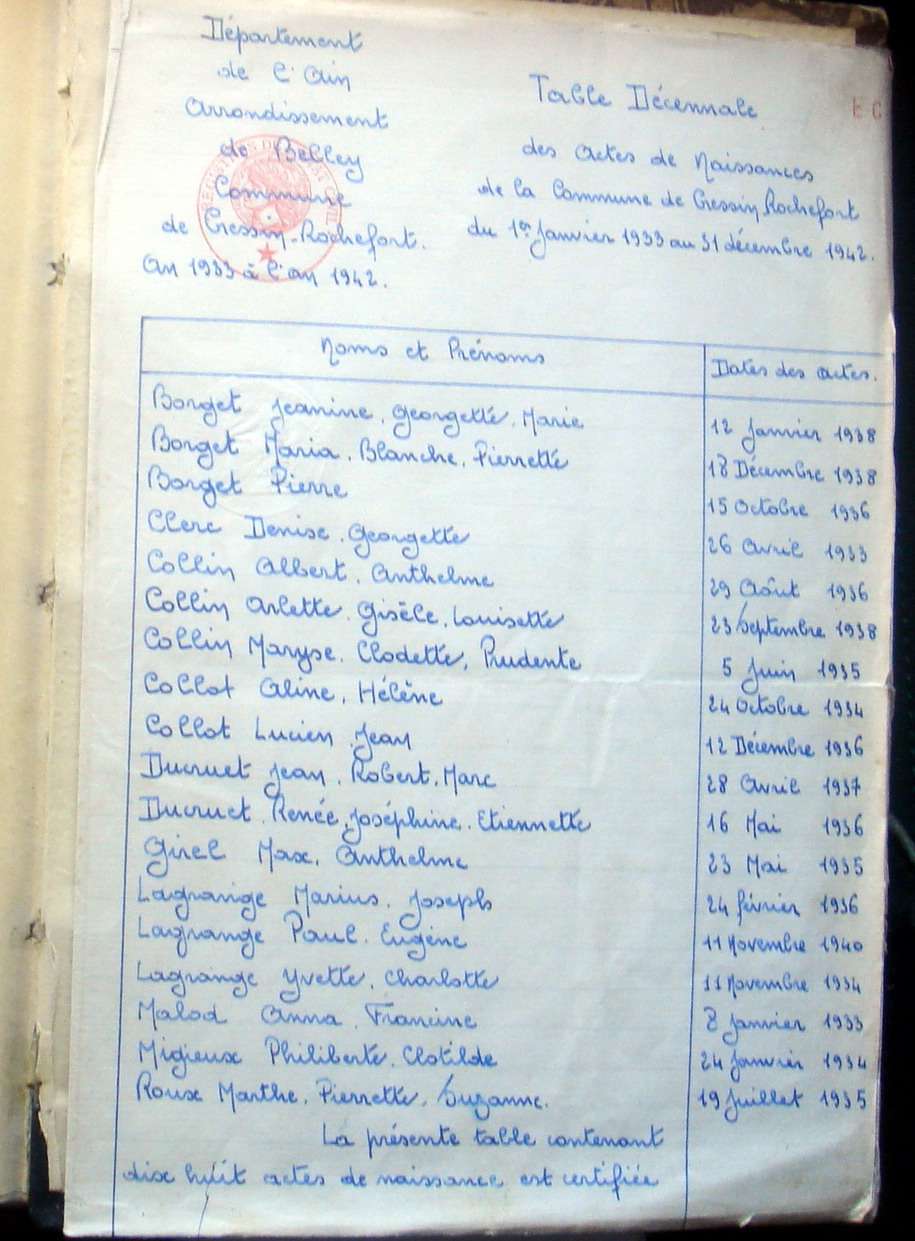 Département
de l'Ain
Arrondissement
de Belley
Commune
de Cressin-Rochefort.
An 1933 à l'an 1942.
Table Décennale
des Actes de Naissances
de la Commune de Cressin Rochefort
du 1er Janvier 1933 au 31 décembre 1942.
E C
Noms et Prénoms Dates des actes.
Borget Jeanine, Georgette, Marie 12 Janvier 1938
Borget Maria, Blanche, Pierrette 18 Décembre 1938
Borget Pierre 15 Octobre 1936
Clerc Denise, Georgette 26 Avril 1933
Collin Albert, Anthelme 29 Aôut 1936
Collin Arlette, Gisèle, Louisette 23 Septembre 1938
Collin Maryse, Clodette, Prudente 5 Juin 1935
Collot Aline, Hélène 24 Octobre 1934
Collot Lucien, Jean 12 Décembre 1936
Ducruet Jean, Robert, Marc 28 Avril 1937
Ducruet, Renée, Joséphine, Etiennette 16 Mai 1936
Girel Max, Anthelme 23 Mai 1935
Lagrange Marius, Joseph 24 février 1936
Lagrange Paul, Eugène 11 Novembre 1940
Lagrange Yvette, Charlotte 11 Novembre 1934
Malod Anna, Francine 8 Janvier 1933
Migieux Philiberte, Clotilde 24 Janvier 1934
Roux Marthe, Pierrette, Suzanne. 19 Juillet 1935
La présente table contenant
dix huit actes de naissance est certifiée